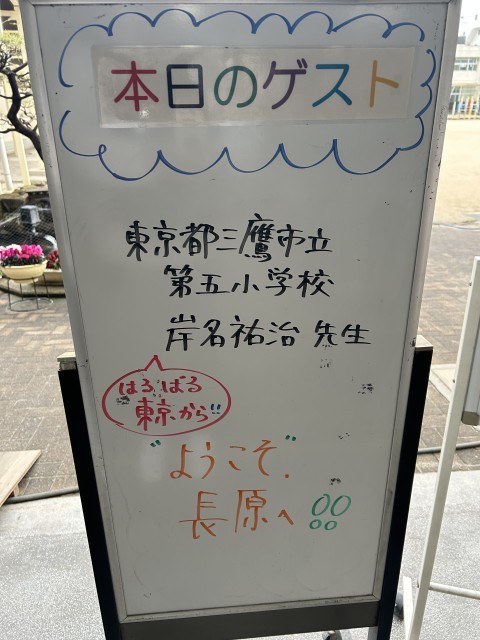 本日のゲスト
東京都三鷹市立
第五小学校
岸名祐治 先生
はるばる
東京から!!
"ようこそ"
長原へ!!